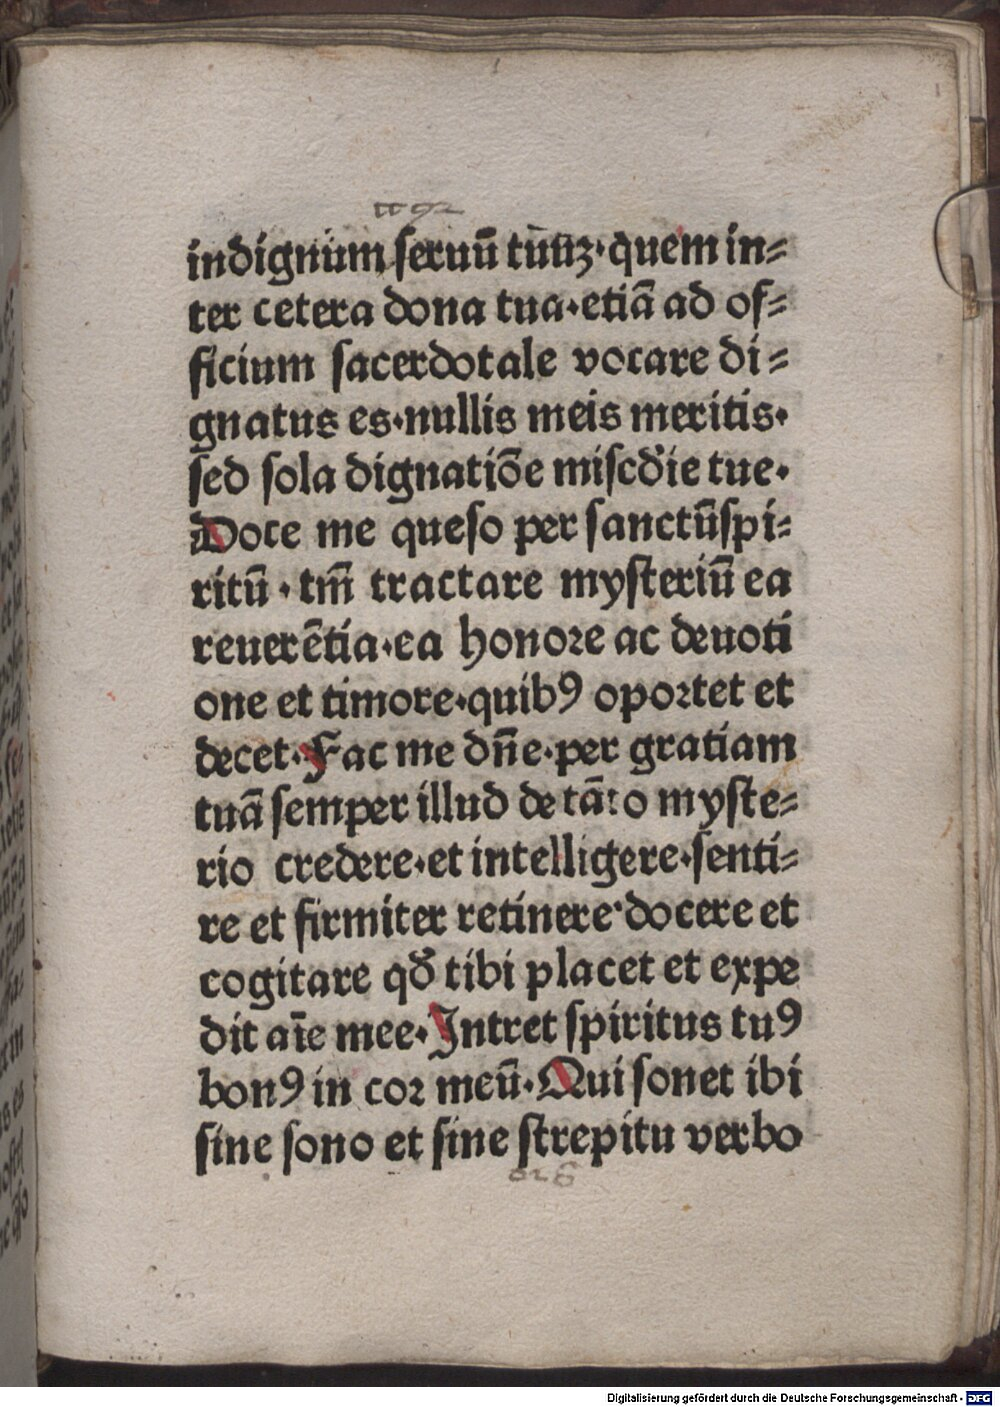 indignum seruū tuūʒ·quem in⸗
ter cetera dona tua·etiā ad of⸗
ficium sacerdotale vocare di⸗
gnatus es·nullis meis meritis·
sed sola dignatiōe miscd̓ie tue·
Doce me queso per sanctūspi⸗
ritū·tm̄ tractare mysteriū ea
reuerētia·ea honore ac deuoti
one et timore·quibꝰ oportet et
decet·Fac me dn̄e·per gratiam
tuā semper illud de tāto myste⸗
rio credere·et intelligere·senti⸗
re et firmiter retinere·docere et
cogitare qd̓ tibi placet et expe
dit aīe mee·Intret spiritus tuꝰ
bonꝰ in cor meū·Qui sonet ibi
sine sono et sine strepitu verbo
Digitalisierung gefördert durch die Deutsche Forschungsgemeinschaft - DFG